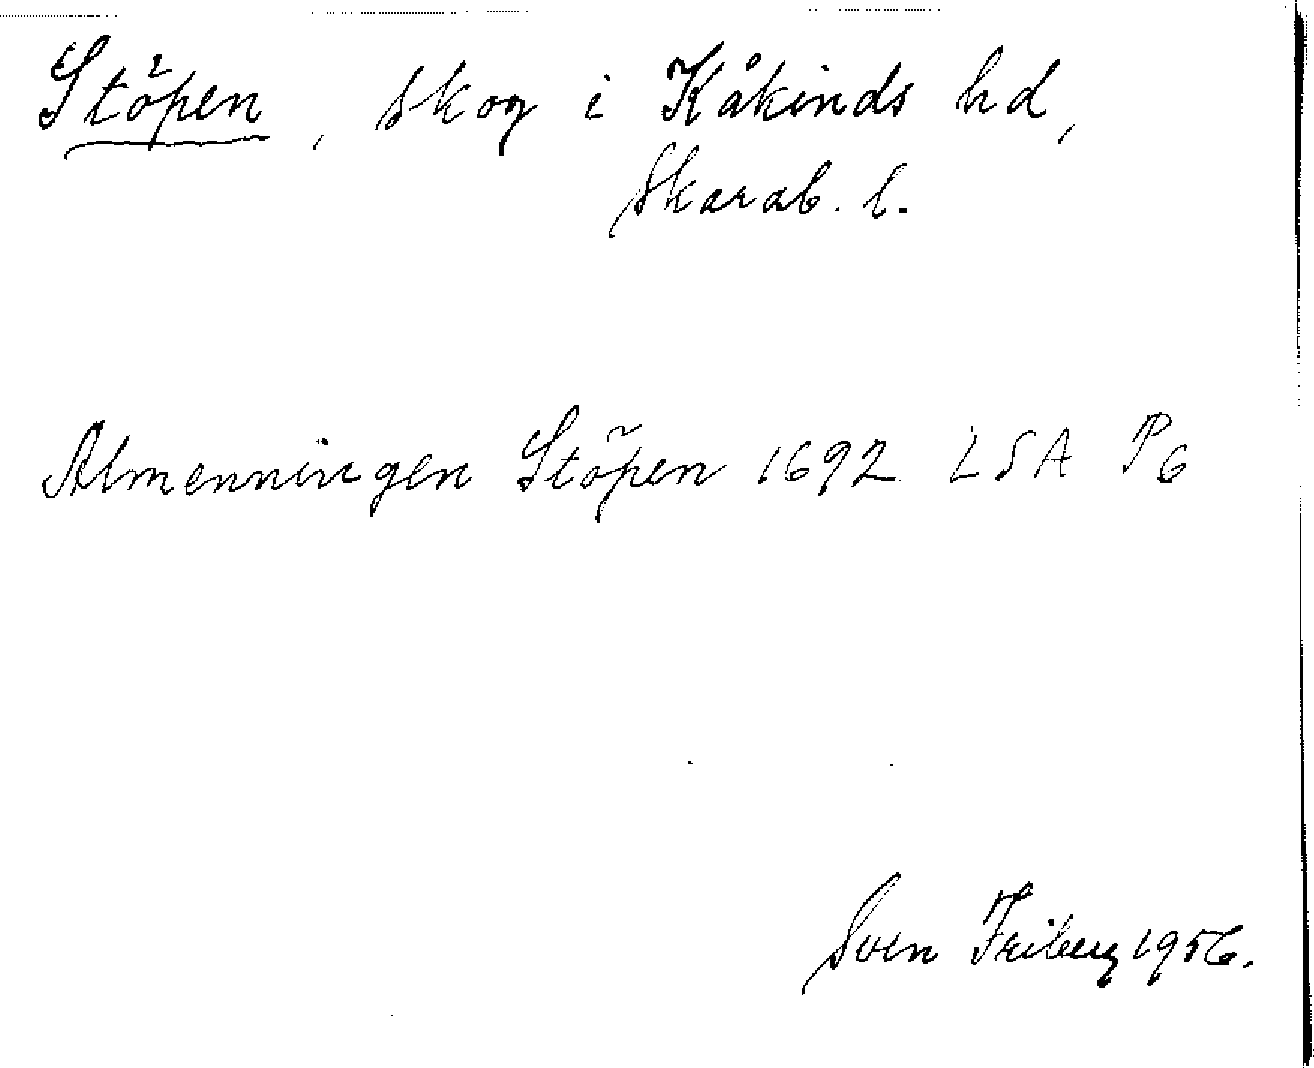 Stöpen, skog i Kåkinds hd,
Skarab. l.
Almenningen Stöpen 1692 LSA P6
Sven Friberg 1956.